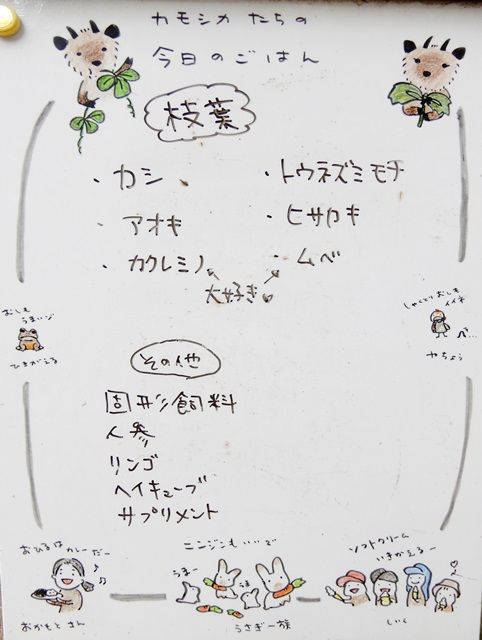 カモシカたちの
今日のごはん
枝葉
・カシ
・トウネズミモチ
・アオキ
・ヒサカキ
・カクレミノ
・ムベ
大好き
おしも
うまいゾ
ひきがえる
しゃくとりおしも
イイネ
やちょう
その他
固形飼料
人参
リンゴ
ヘイキューブ
サプリメント
おひるはカレーだー
おかもとさん
ニンジンもいいで
うまー
うま
うさぎ一族
ソフトクリーム
いきかえるー